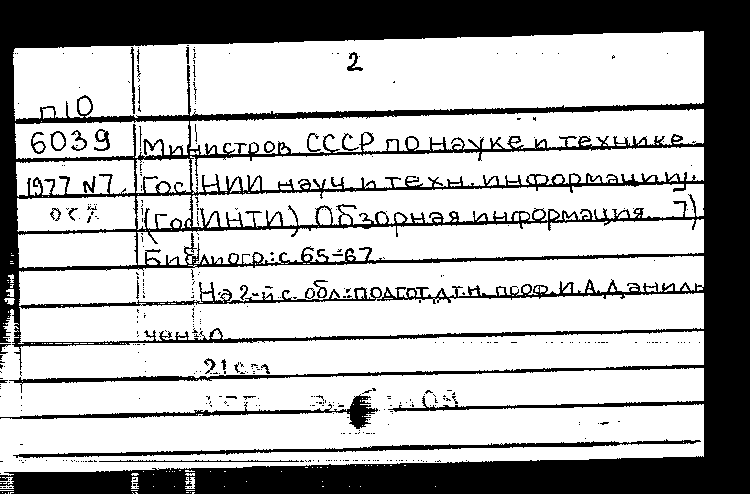 2
П10
6039 Министров СССР по науке и технике.
1977 N7. Гос. НИИ науч. и техн. информации.
(ГосИНТИ). Обзорная информация. 7)
Библиогр.: с. 65-67.
На 2-й с. обл.: подгот. д.т.н. проф. И.А. Даниль
ченко
21 см